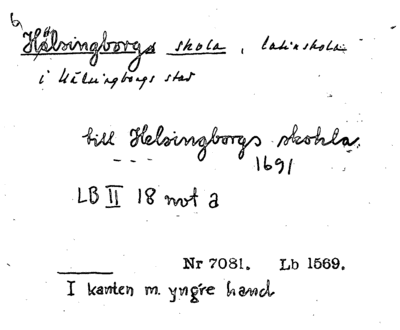 Hälsingborgs skola, latinskola
i Hälsingborgs stad
till Helsingborgs skohla
1691
LB II 18 not a
Nr 7081. Lb 1569.
I kanten m. yngre hand